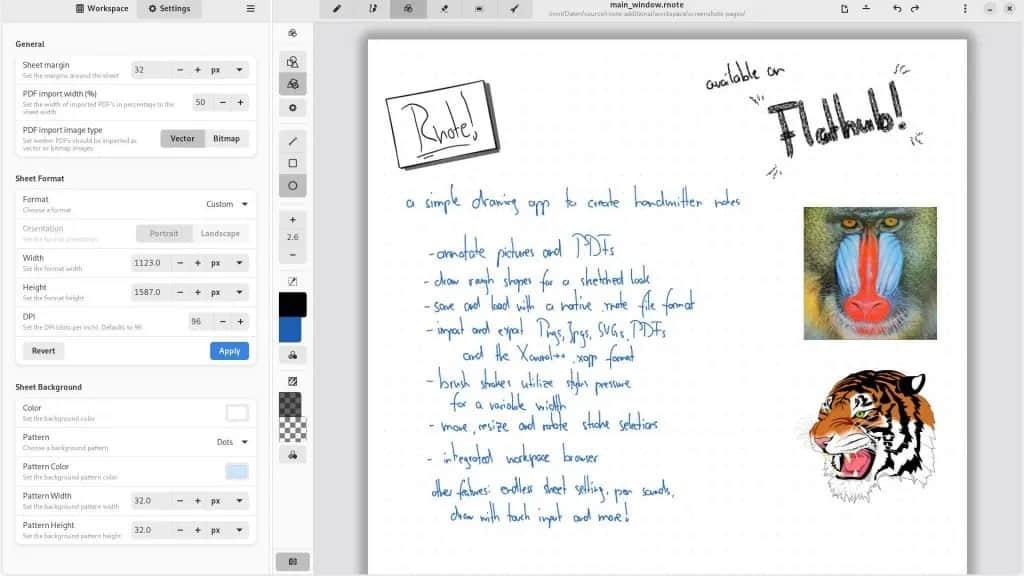 Workspace
Settings
main_window.rnote
General
Sheet margin
Set the margins around the sheet
32
px
PDF import width (%)
Set the width of imported PDF's in percentage to the sheet width
50
PDF import image type
Set wether PDFs should be imported as vector or bitmap images
Vector
Bitmap
Sheet Format
Format
Choose a format
Custom
Orientation
Portrait
Landscape
Width
Set the format width
1123.0
px
Height
Set the format height
1587.0
px
DPI
Set the DPI (dots per inch). Defaults to 96
96
Revert
Apply
Sheet Background
Color
Set the background color
Pattern
Choose a background pattern
Dots
Pattern Color
Set the background pattern color
Pattern Width
Set the background pattern width
32.0
px
Pattern Height
Set the background pattern height
32.0
px
2.6
Rnote!
available on
Flathub!
a simple drawing app to create handwritten notes
- annotate pictures and PDFs
- draw rough shapes for a sketched look
- save and load with a native .rnote file format
- import and export Pngs, Jpgs, SVGs, PDFs
and the Xournal++ .xopp format
- brush strokes utilize stylus pressure
for a variable width
- move, resize and rotate stroke selections
- integrated workspace browser
other features: endless sheet setting, pen sounds,
draw with touch input and more!